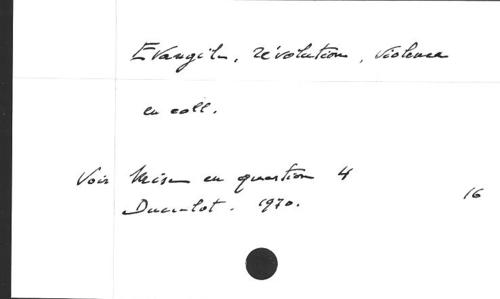 Evangile, révolution, violence
en coll.
Voir Mise en question 4
Duculot. 1970.
16